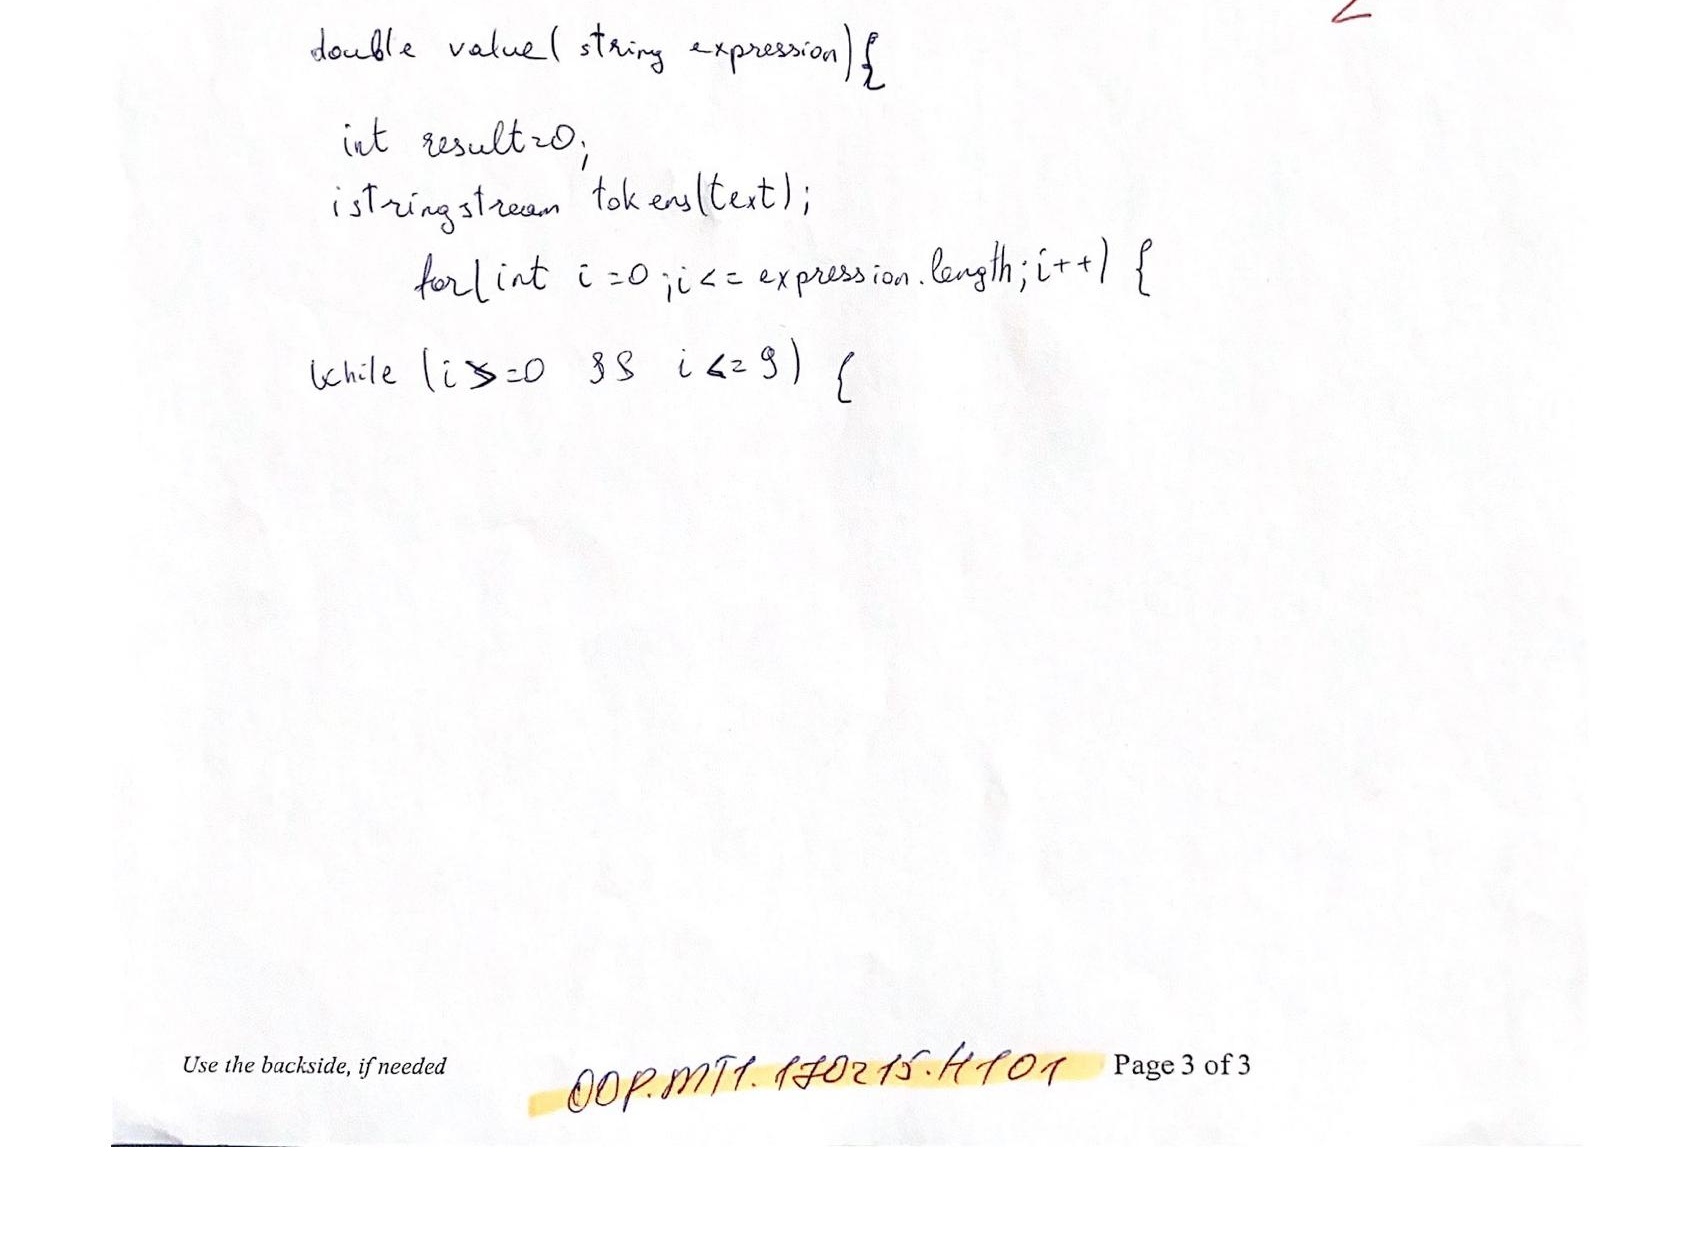 double value( string expression) {
int result=0;
istringstream tokens(text);
for( int i=0; i<= expression.length; i++) {
while (i>=0 && i<=9) {
Use the backside, if needed
OOP.MT1.170215.H101
Page 3 of 3